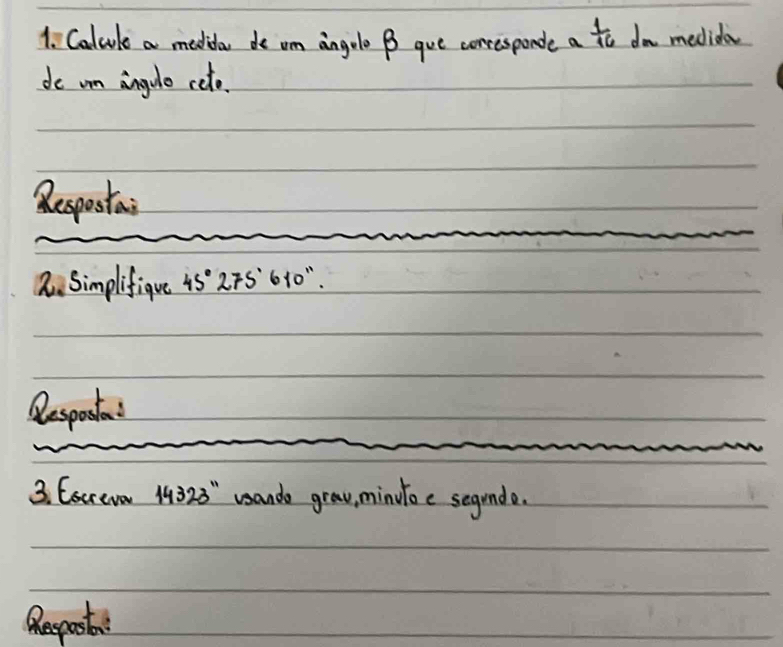 1. Calcule a medida de um ângulo β que corresponde a 1/16 da medida
de um ângulo reto.
Resposta:
2. Simplifique 45° 275' 610".
Resposta:
3. Escreva 14323" usando grau, minuto e segundo.
Resposta: